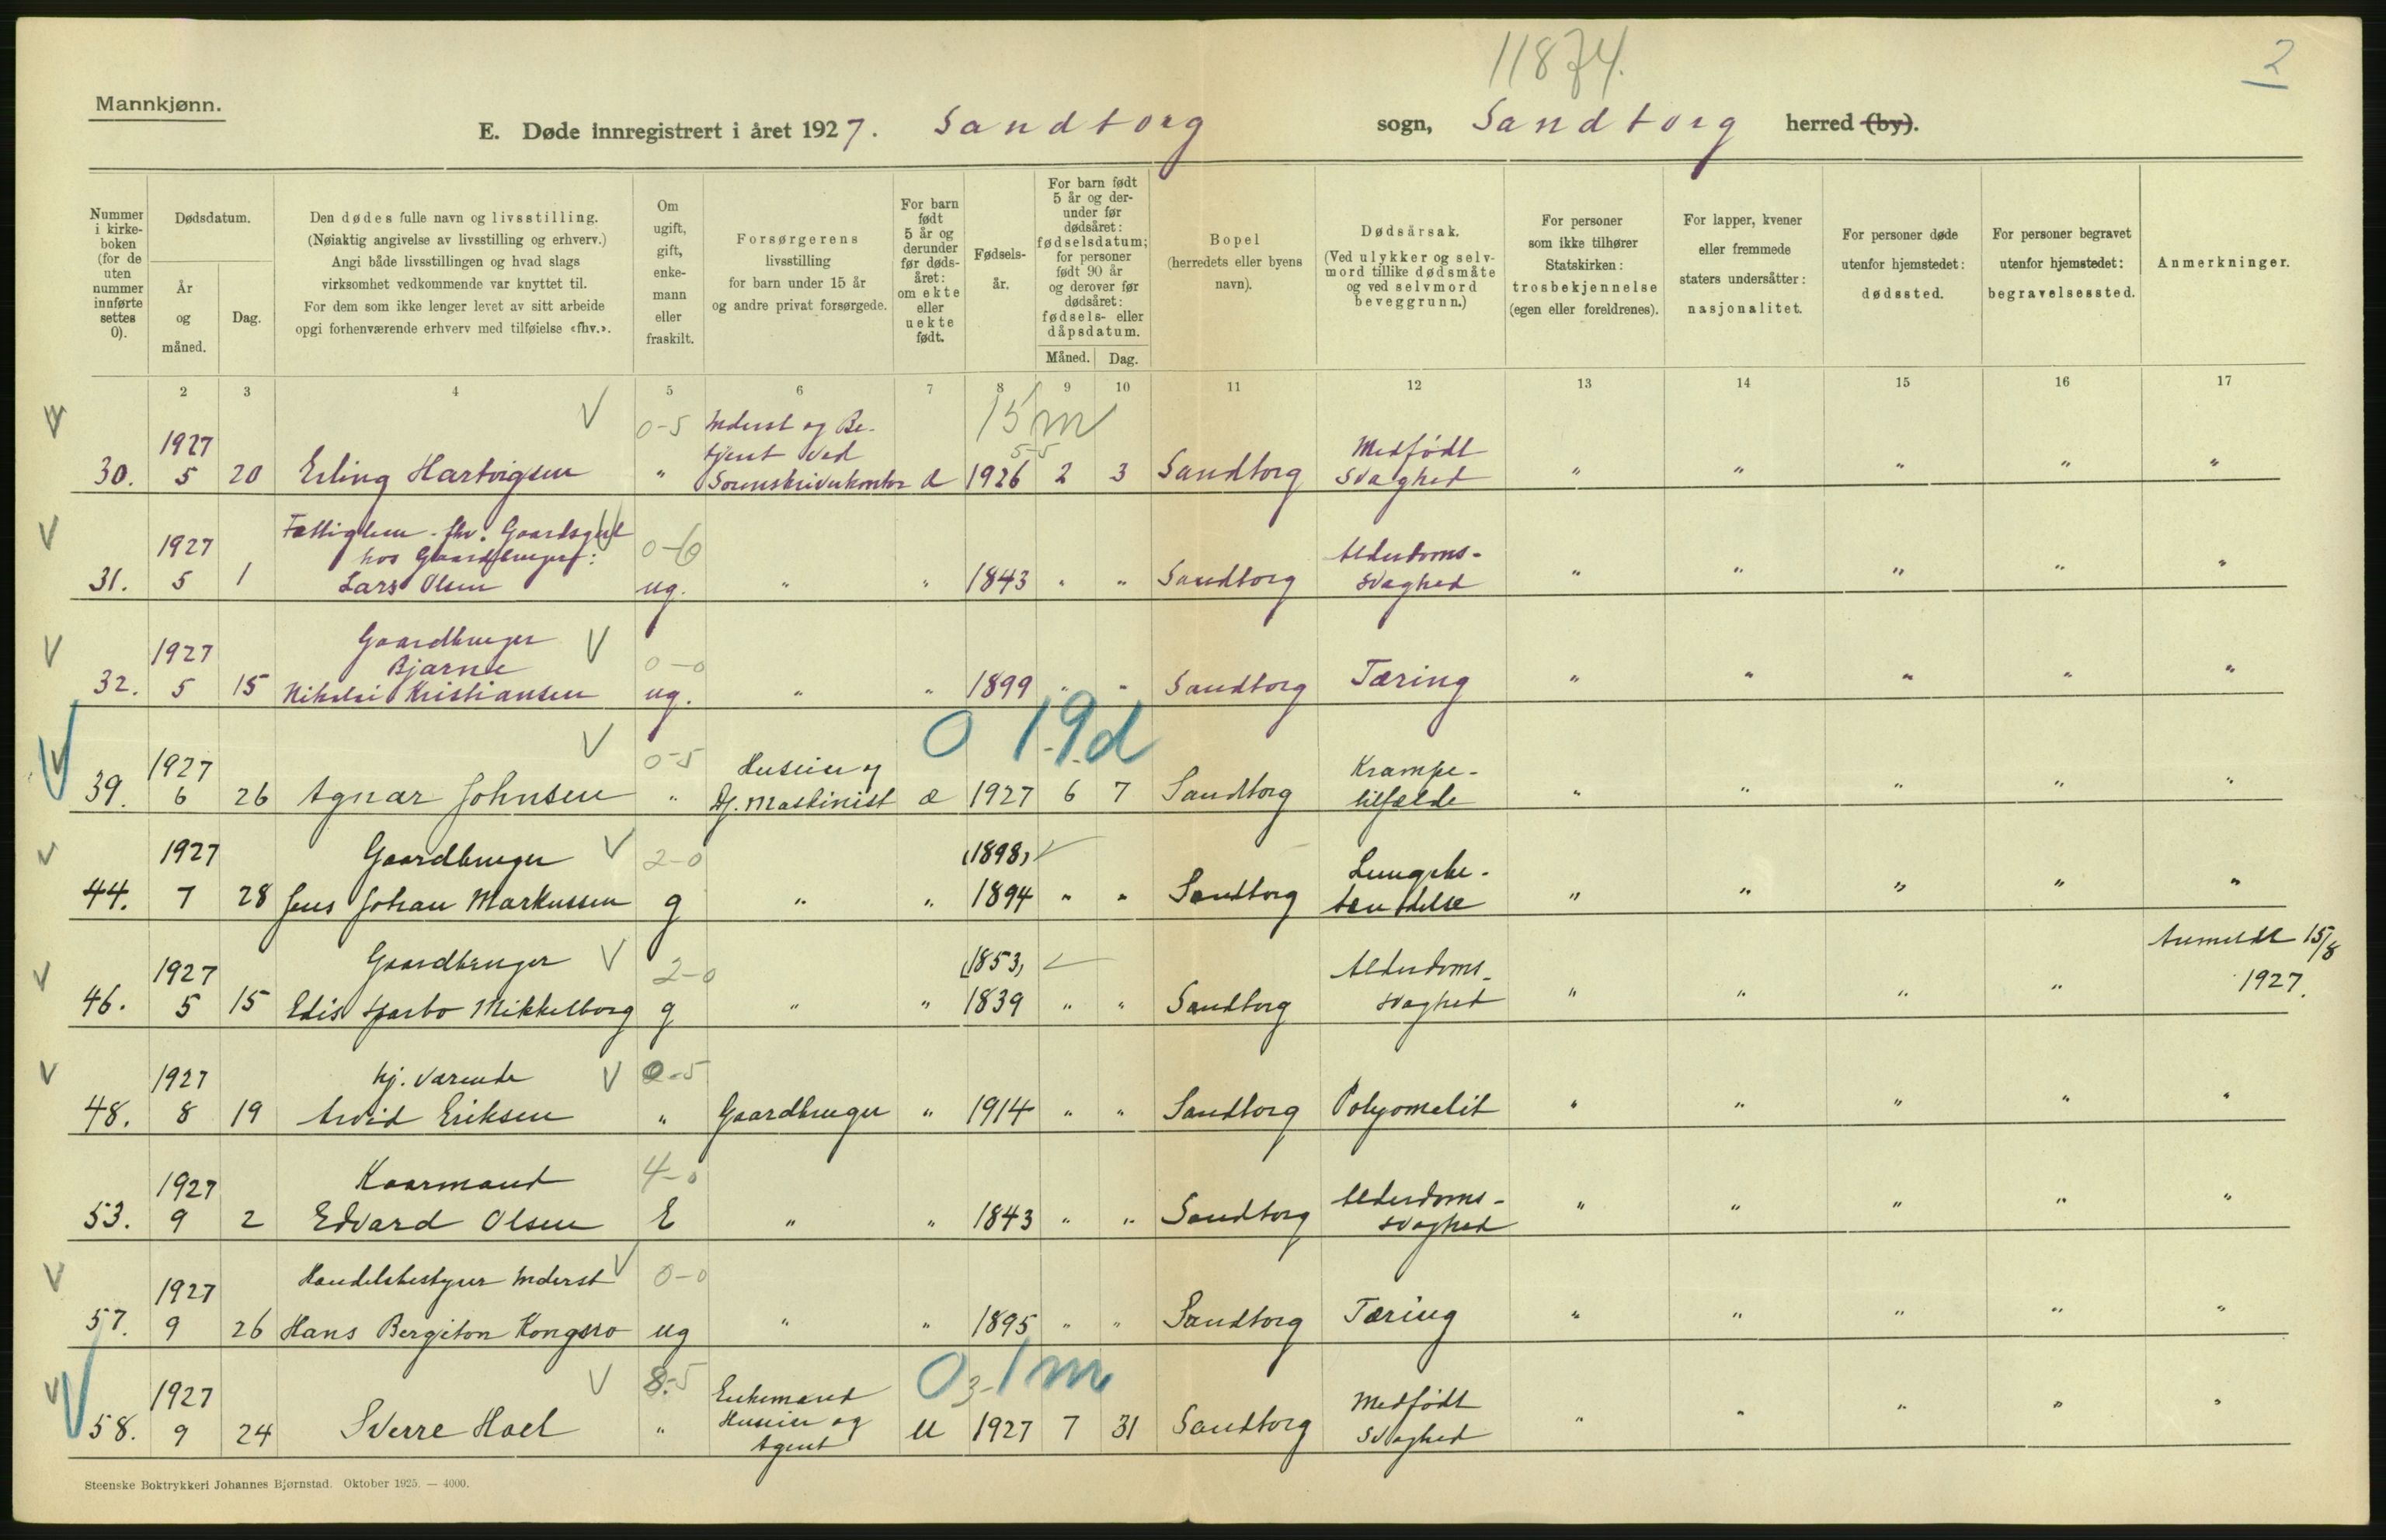 11874.
2
Mannkjønn.
E. Døde innregistrert i året 1927. Sandtorg sogn, Sandtorg herred (by).
Nummer i kirke-boken (for de uten nummer innførte settes 0).
Dødsdatum.
År og måned.
Dag.
Den dødes fulle navn og livsstilling.
(Nøiaktig angivelse av livsstilling og erhverv.)
Angi både livsstillingen og hvad slags
virksomhet vedkommende var knyttet til.
For dem som ikke lenger levet av sitt arbeide
opgi forhenværende erhverv med tilføielse «fhv.».
Om ugift, gift, enke-mann eller fraskilt.
Forsørgerens
livsstilling
for barn under 15 år
og andre privat forsørgede.
For barn født 5 år og derunder før døds-året: om ekte eller uekte født.
Fødsels-år.
For barn født 5 år og der-under før dødsåret: fødselsdatum; for personer født 90 år og derover før dødsåret: fødsels- eller dåpsdatum.
Måned. Dag.
Bopel
(herredets eller byens
navn).
Dødsårsak.
(Ved ulykker og selv-
mord tillike dødsmåte
og ved selvmord
beveggrunn.)
For personer
som ikke tilhører
Statskirken:
trosbekjennelse
(egen eller foreldrenes).
For lapper, kvener
eller fremmede
staters undersåtter:
nasjonalitet.
For personer døde
utenfor hjemstedet:
dødssted.
For personer begravet
utenfor hjemstedet:
begravelsessted.
Anmerkninger.
2 3 4 5 6 7 8 9 10 11 12 13 14 15 16 17
V V 0-5 Inderst og Be- 15 m
1927 tjent ved 5-5 Medfødt
30. 5 20 Erling Hartvigsen " Sorenskriverkontor æ 1926 2 3 Sandtorg Svaghed " " " " "
V Fattiglem fhv. Gaardsgut V
1927 hos Gaardbruger: 0-6 Alderdoms-
31. 5 1 Lars Olsen ug. " " 1843 " " Sandtorg svaghed " " " " "
V Gaardbruger V
1927 Bjarne 0-0
32. 5 15 Nikolai Kristiansen ug. " " 1899 " " Sandtorg Tæring " " " " "
V V 0 19d
1927 0-5 Huseier og Krampe-
39. 6 26 Agnar Johnsen " Maskinist æ 1927 6 7 Sandtorg tilfælde " " " " "
V 1927 Gaardbruger V 2-0 (1898) Lungebe-
44. 7 28 Jens Johan Markussen g " " 1894 " " Sandtorg tændelse " " " " "
V 1927 Gaardbruger V 2-0 (1853) Alderdoms- Anmeldt 15/8
46. 5 15 Edis Sparbo Mikkelborg g " " 1839 " " Sandtorg svaghed " " " " 1927.
V 1927 hj. værende V 0-5
48. 8 19 Arvid Eriksen " Gaardbruger " 1914 " " Sandtorg Polyomelit " " " " "
1927 Kaarmand 4-0 Alderdoms-
53. 9 2 Edvard Olsen E " " 1843 " " Sandtorg svaghed " " " " "
V 1927 Handelsbestyrer Inderst V 0-0
57. 9 26 Hans Bergiton Kongsro ug " " 1895 " " Sandtorg Tæring " " " " "
V V 8-5 Enkemand 0 3-1m
1927 Huseier og Medfødt
58. 9 24 Sverre Hoel " Agent U 1927 7 31 Sandtorg Svaghed " " " " "
Steenske Boktrykkeri Johannes Bjørnstad. Oktober 1925. — 4000.